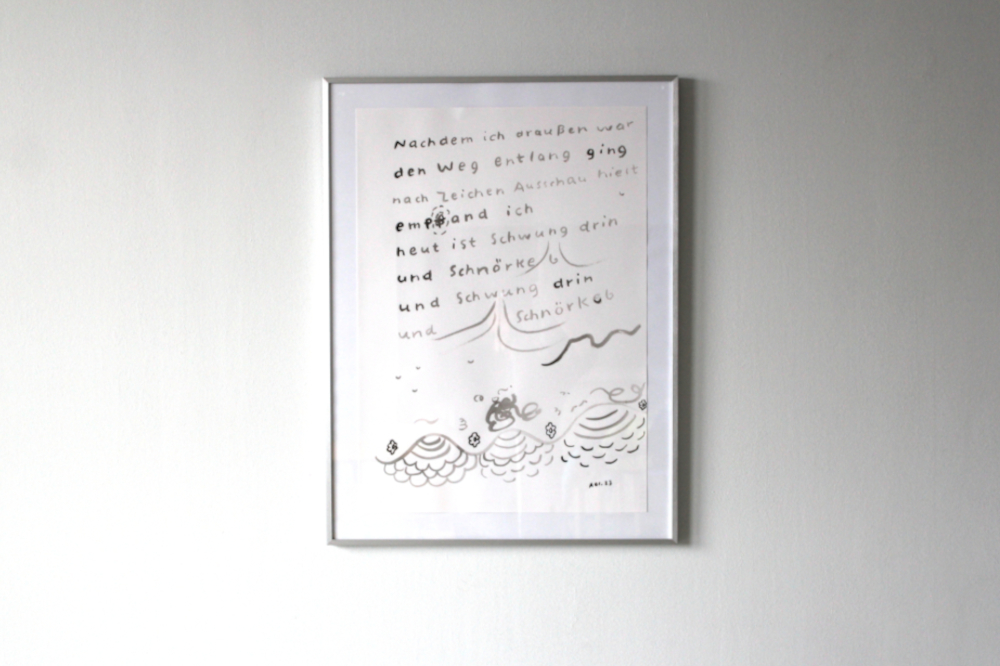 Nachdem ich draußen war
den Weg entlang ging
nach Zeichen Ausschau hielt
empfand ich
heut ist Schwung drin
und Schnörkel
und Schwung drin
und Schnörkel